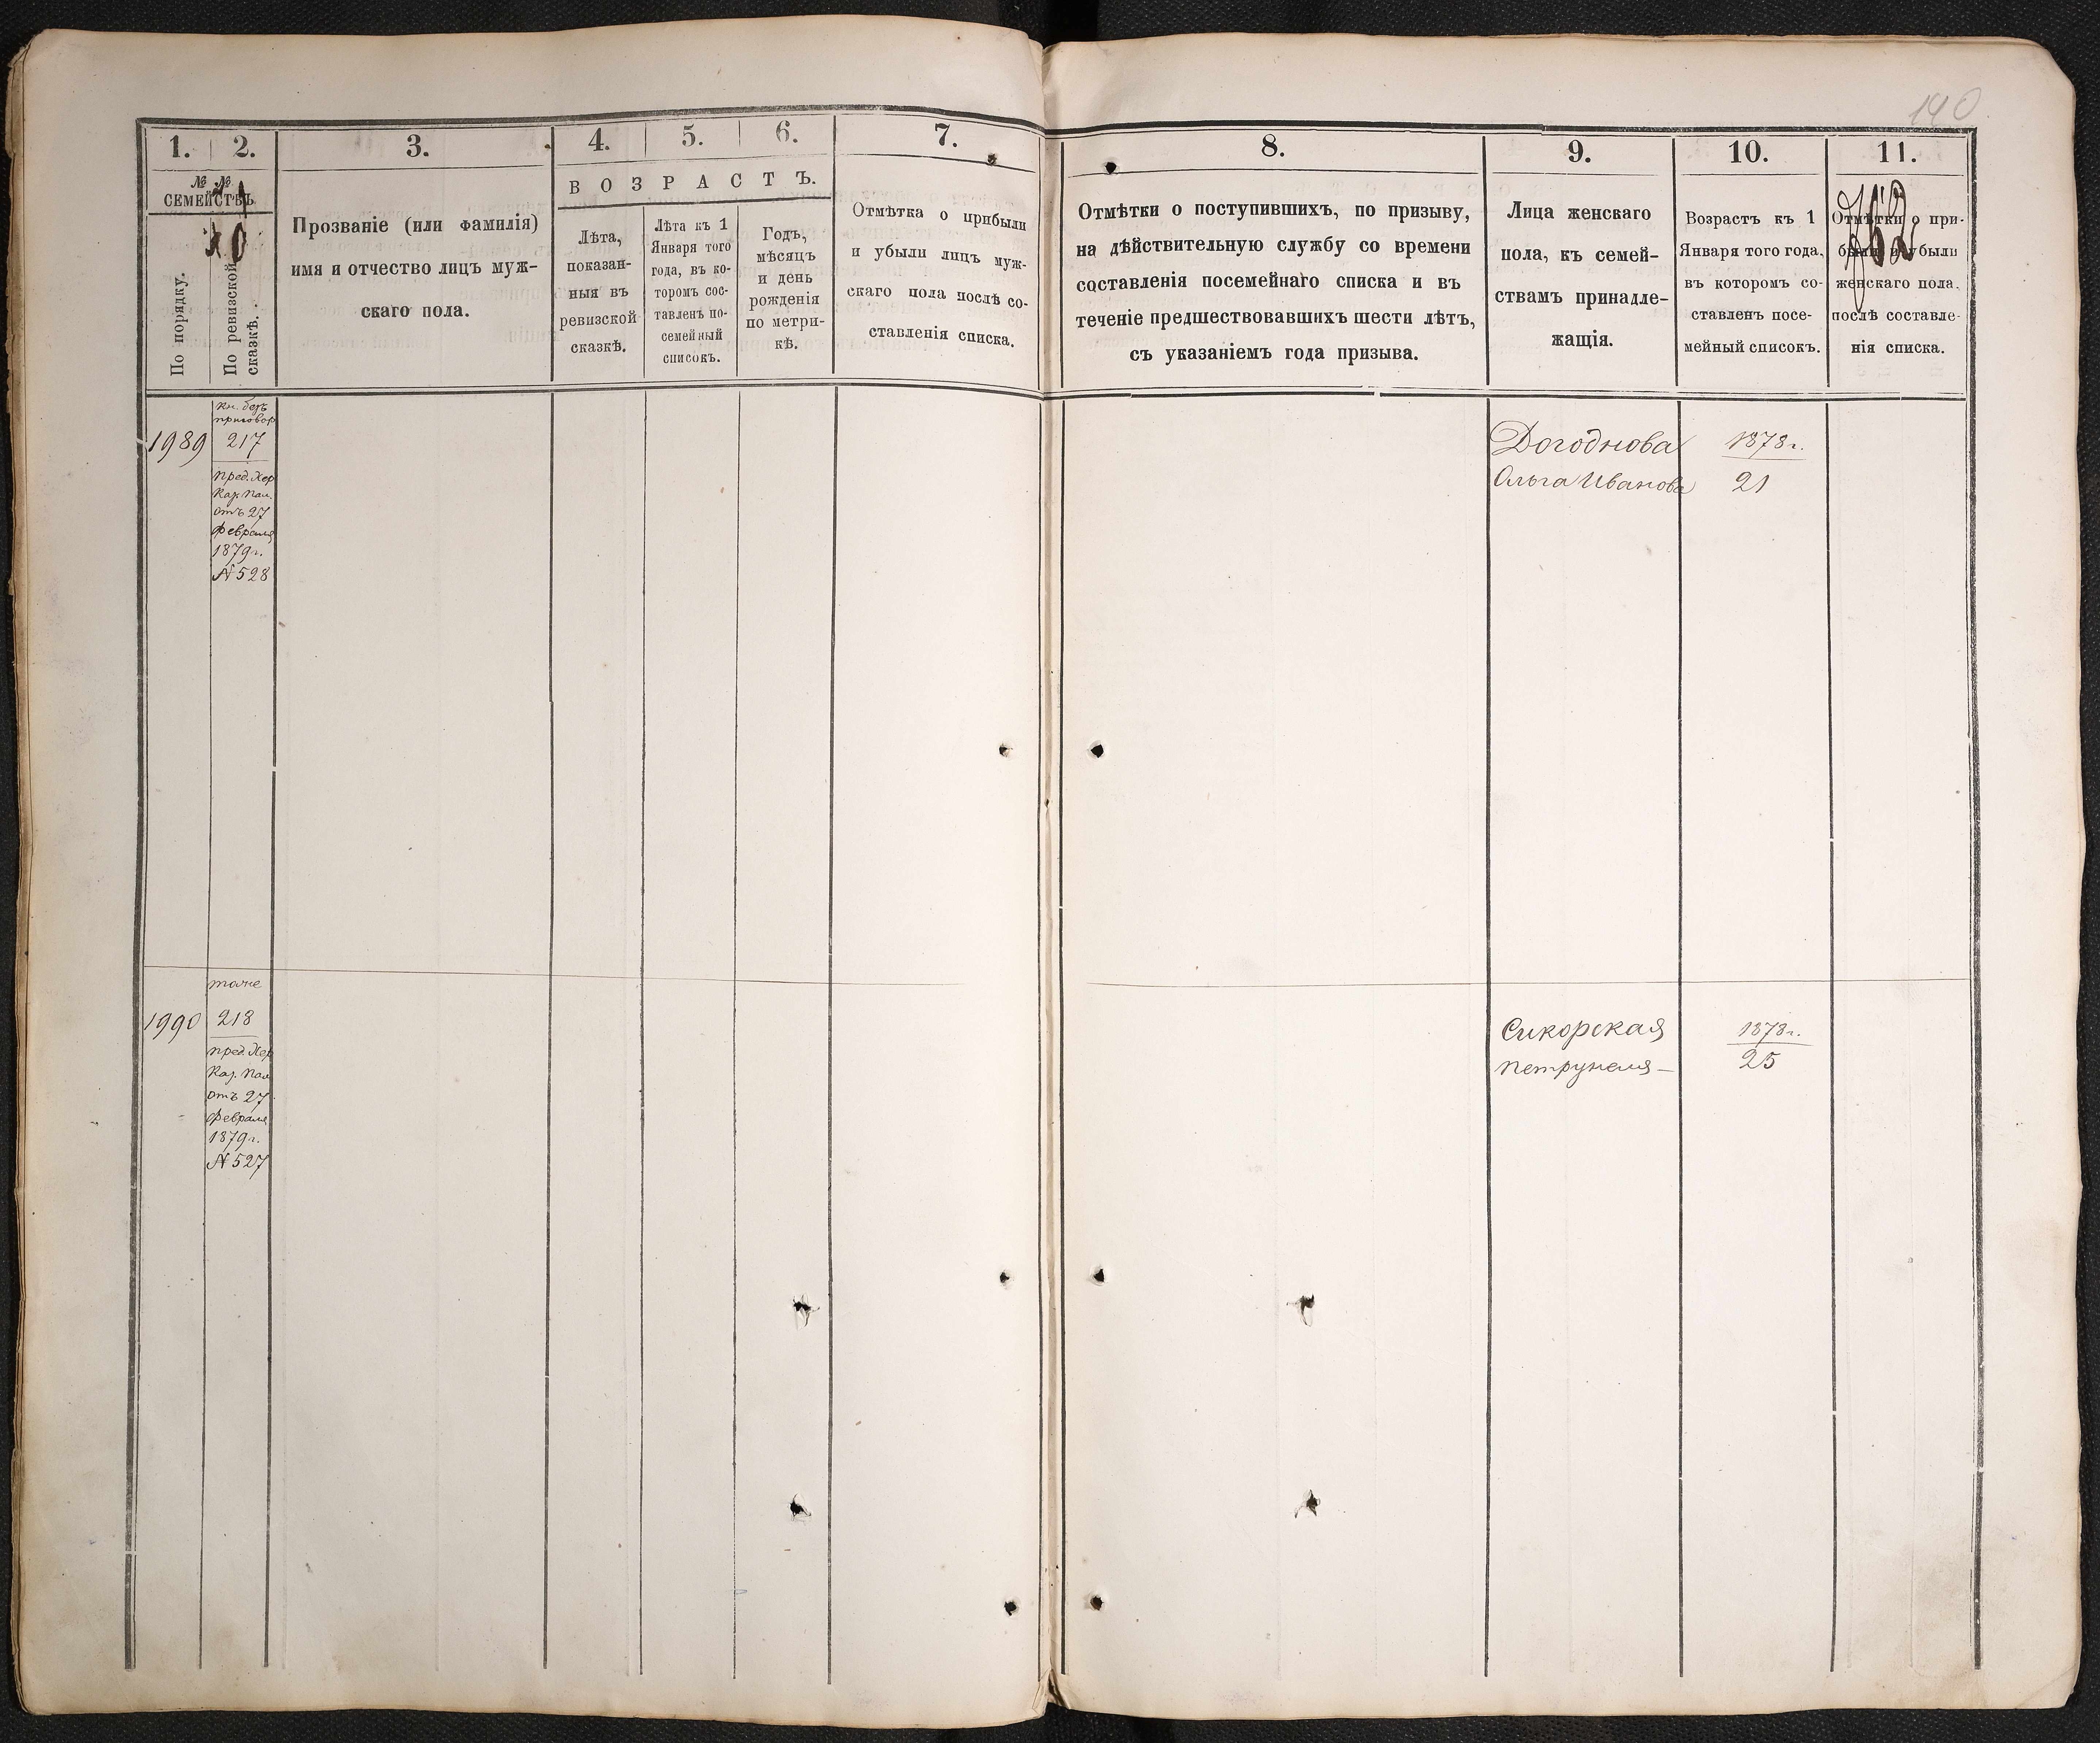 140
1. 2. 3. 4. 5. 6. 7. 8. 9. 10. 11.
№ №
СЕМЕЙСТВЪ
По порядку.
По ревизской
сказкѣ.
Прозваніе (или фамилія)
имя и отчество лицъ муж-
скаго пола.
ВОЗРАСТЪ.
Лѣта,
показан-
ныя въ
ревизской
сказкѣ.
Лѣта къ 1
Января того
года, въ ко-
торомъ сос-
тавленъ по-
семейный
списокъ.
Годъ,
мѣсяцъ
и день
рожденія
по метри-
кѣ.
Отмѣтка о прибыли
и убыли лицъ муж-
скаго пола послѣ со-
ставленія списка.
Отмѣтки о поступившихъ, по призыву,
на дѣйствительную службу со времени
составленія посемейнаго списка и въ
теченіе предшествовавшихъ шести лѣтъ,
съ указаніемъ года призыва.
Лица женскаго
пола, къ семей-
ствамъ принадле-
жащія.
Возрастъ къ 1
Января того года,
въ которомъ со-
ставленъ посе-
мейный списокъ.
Отмѣтки о при-
были и убыли
женскаго пола,
послѣ составле-
нія списка.
1989
кн. безъ
приговор
217
пред. Хер
Каз. Пал.
отъ 27
февраля
1879 г.
№ 528
Догоднова
Ольга Иванова
1878 г.
21
1990
тоже
218
пред. Хер
Каз. Пал
отъ 27
февраля
1879 г.
№ 527
Сикорская
Петрунеля —
1878 г.
25